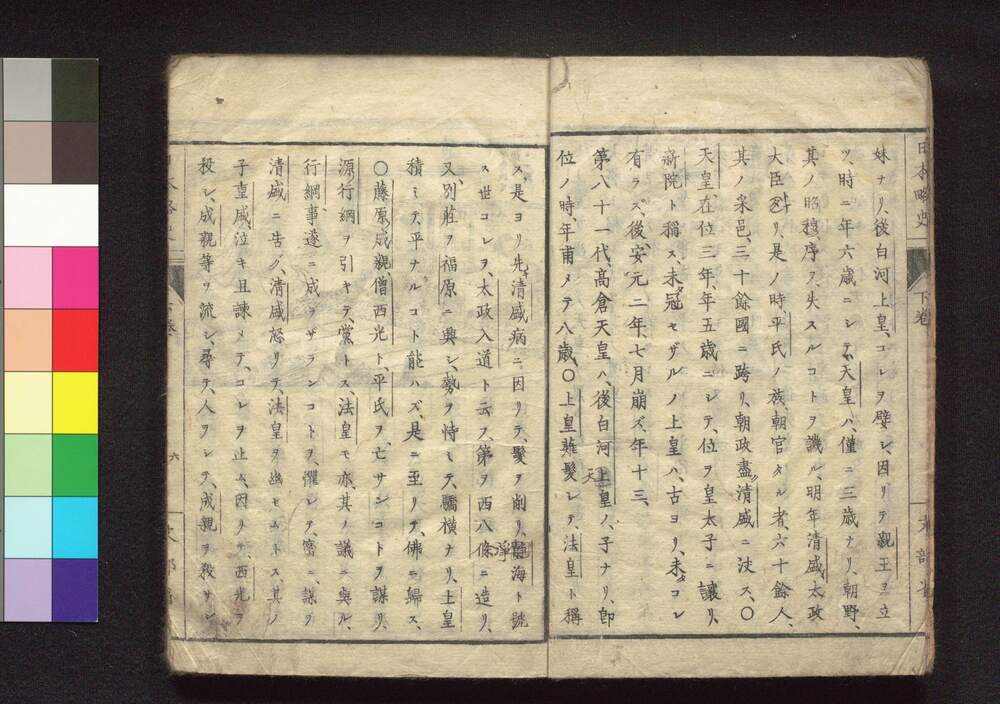 日本略史 下巻 文部省
妹ナリ、後白河上皇、コレヲ嬖シ、因リテ親王ヲ立
ツ、時ニ年六歳ニシテ、天皇ハ、僅ニ三歳ナリ、朝野、
其ノ昭穆、序ヲ失スルコトヲ譏ル、明年清盛太政
大臣トナリ、是ノ時平氏ノ族、朝官タル者、六十餘人、
其ノ采邑、三十餘國ニ跨リ、朝政盡ク清盛ニ决ス、〇
天皇、在位三年、年五歳ニシテ、位ヲ皇太子ニ讓リ、
新院ト稱ス、未ダ冠セザルノ上皇ハ、古ヨリ、未ダコレ
有ラズ、後、安元二年、七月崩ズ、年十三、
第八十一代、高倉天皇ハ、後白河天皇ノ、子ナリ、即
位ノ時、年甫メテ八歳、〇上皇薙髮シテ、法皇ト稱
ス、是ヨリ先キ、清盛病ニ因リテ、髮ヲ削リ、淨海ト號
ス世コレヲ、太政入道ト云フ、第ヲ西八條ニ造リ、
又、別莊ヲ福原ニ興シ、勢ヲ恃ミテ、驕横ナリ、上皇
積ミテ、平ナルコト能ハズ、是ニ至リテ、佛ニ歸ス、
〇藤原成親、僧西光ト、平氏ヲ、亡サンコトヲ謀リ、
源行綱ヲ引キテ、黨トス、法皇モ亦、其ノ議ニ與ル、
行綱、事遂ニ成ラザランコトヲ、懼レテ、密ニ、謀ヲ
清盛ニ告グ、清盛怒リテ、法皇ヲ幽セムトス、其ノ
子重盛、泣キ且諫メテ、コレヲ止ム、因リテ、西光ヲ
殺シ、成親等ヲ流シ、尋テ、人ヲシテ、成親ヲ殺サシ
六